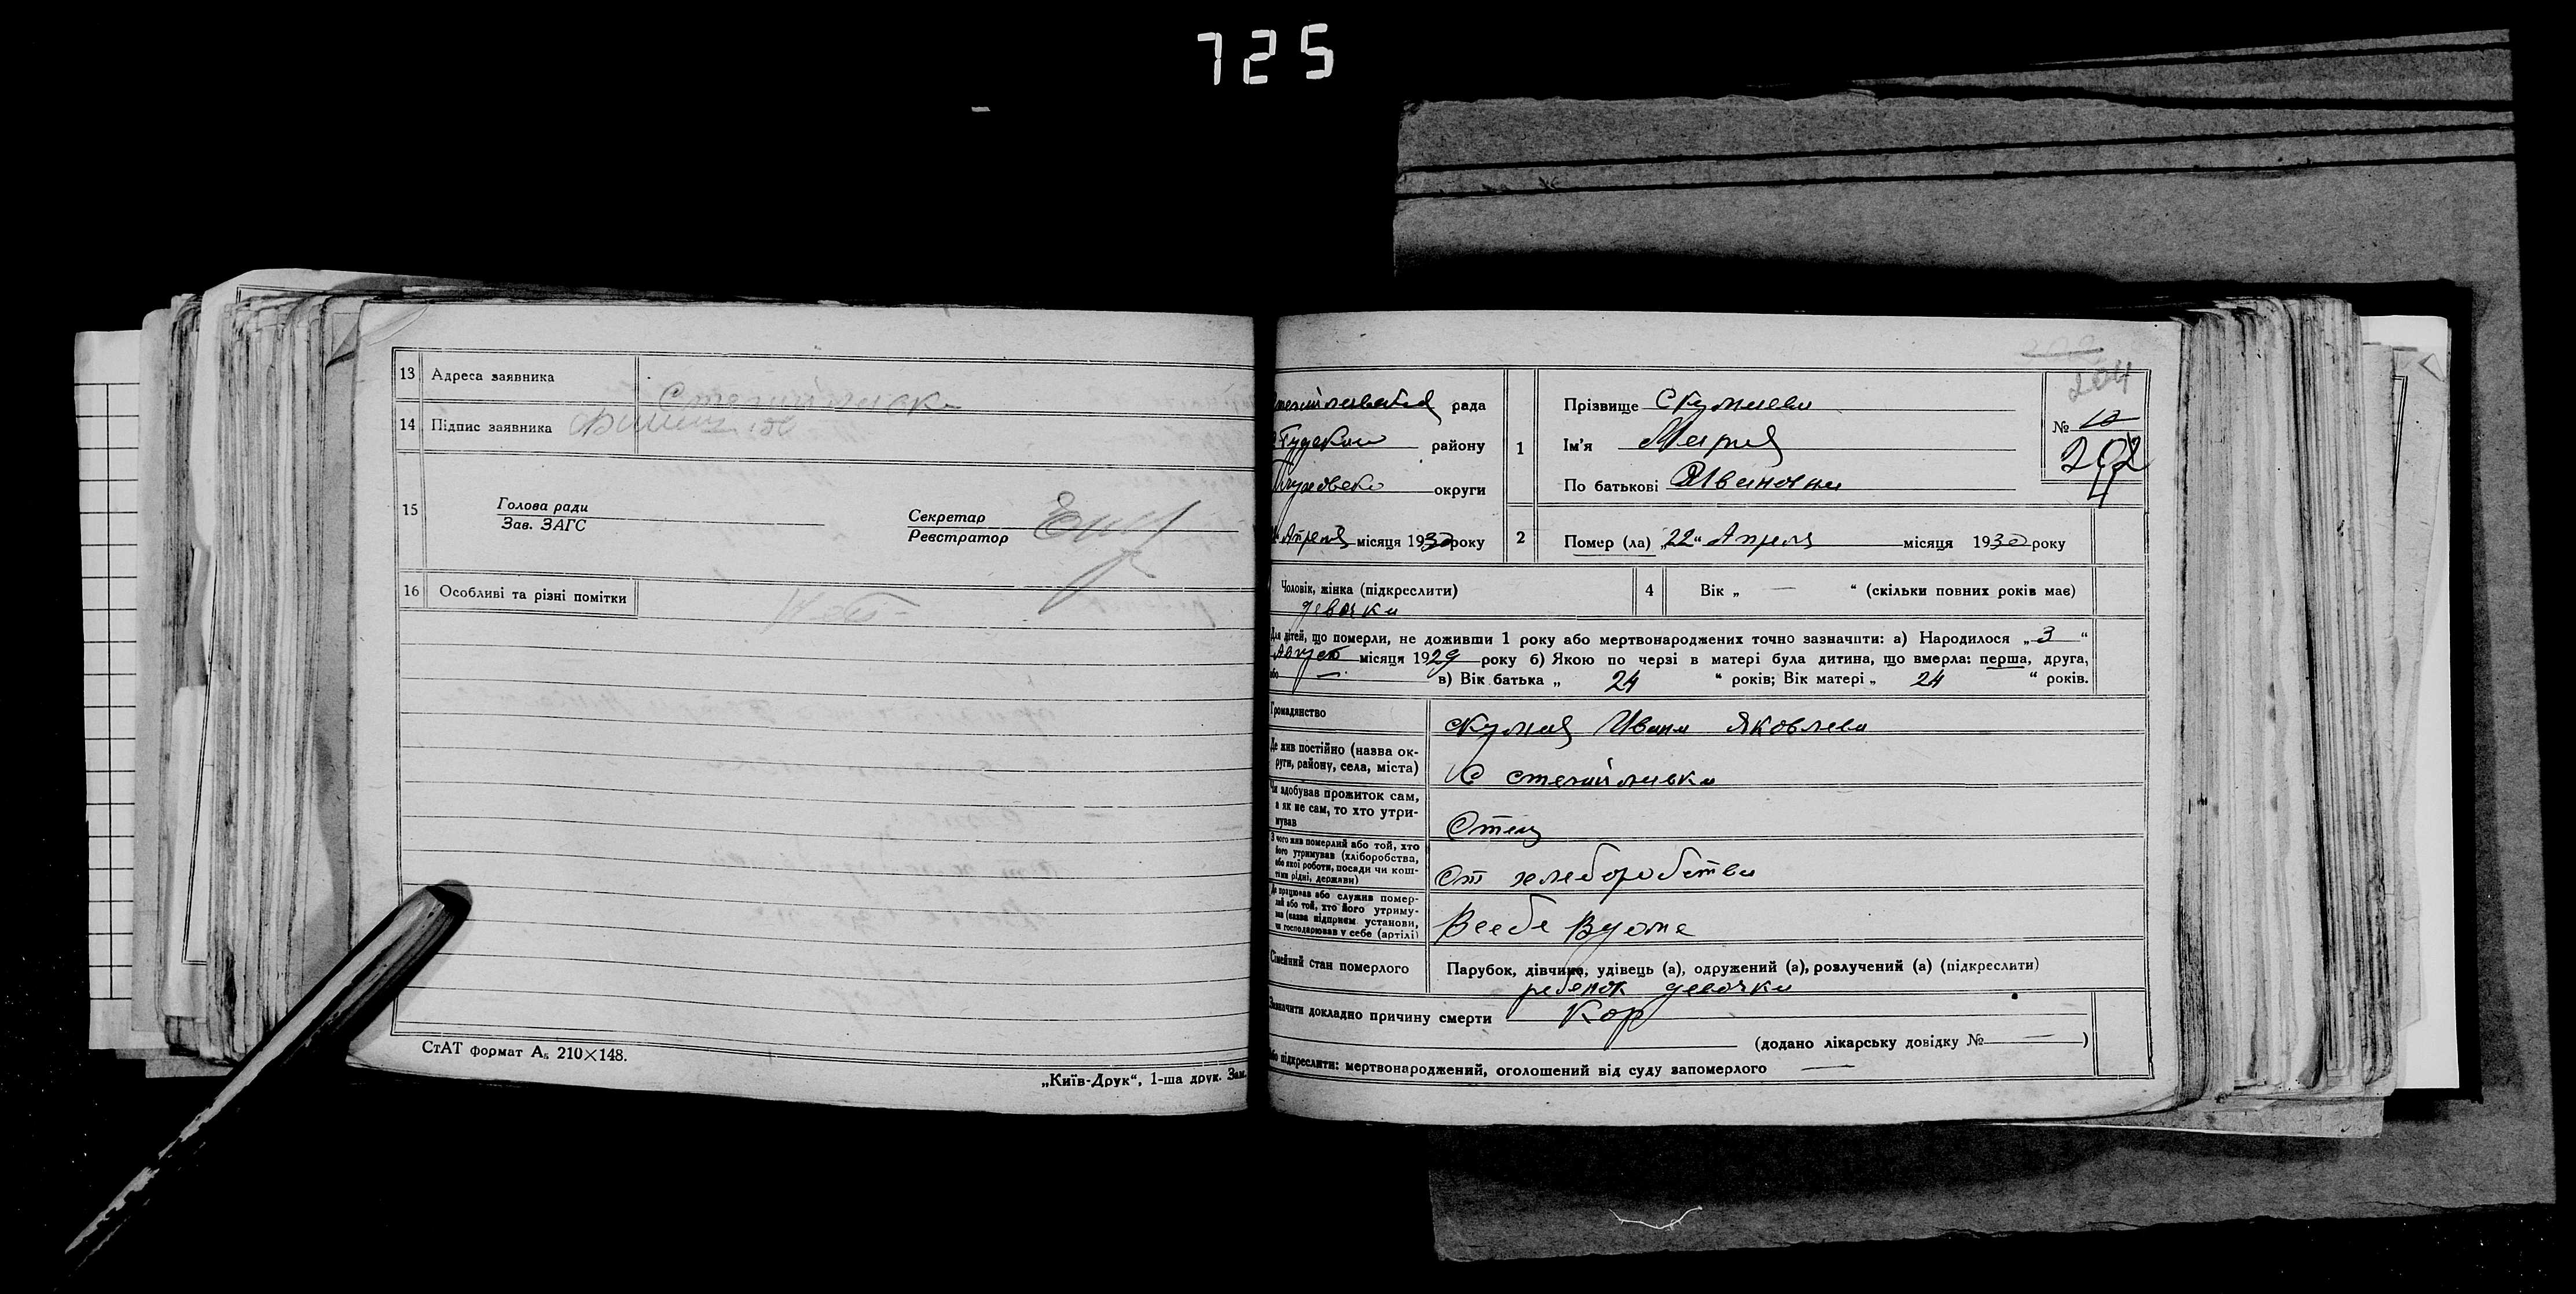 725
13 Адреса заявника
14 Підпис заявника
15
Голова ради
Зав. ЗАГС
Секретар
Реєстратор
16 Особливі та різні помітки
СтАТ формат А₅ 210×148.
„Київ-Друк“, 1-ша друк. Зам.
204
рада
району
округи
Апреля місяця 1930 року
1
Прізвище
Ім'я Мария
По батькові Ивановна
№ 10
202
2 Помер (ла) „22“ Апреля місяця 1930 року
Чоловік, жінка (підкреслити)
девочка
4 Вік „ — “ (скільки повних років має)
Для дітей, що померли, не доживши 1 року або мертвонароджених точно зазначити: а) Народилося „3“
Август місяця 1929 року б) Якою по черзі в матері була дитина, що вмерла: перша, друга,
або — в) Вік батька „ 24 “ років; Вік матері „ 24 “ років.
Громадянство
Ивана Яковлева
Де жив постійно (назва ок-
руги, району, села, міста)
Чи здобував прожиток сам,
а як не сам, то хто утри-
мував
Отец
З чого жив померлий або той, хто
його утримував (хліборобства,
або якої роботи, посади чи кош-
тами рідні, держави)
От хлеборобства
Де працював або служив помер-
лий або той, хто його утриму-
вав (назва підприєм. установи,
чи господарював у себе (артілі)
Сімейний стан померлого
Парубок, дівчина, удівець (а), одружений (а), розлучений (а) (підкреслити)
ребенок девочка
Зазначити докладно причину смерти Кор
(додано лікарську довідку № — )
Або підкреслити: мертвонароджений, оголошений від суду запомерлого —